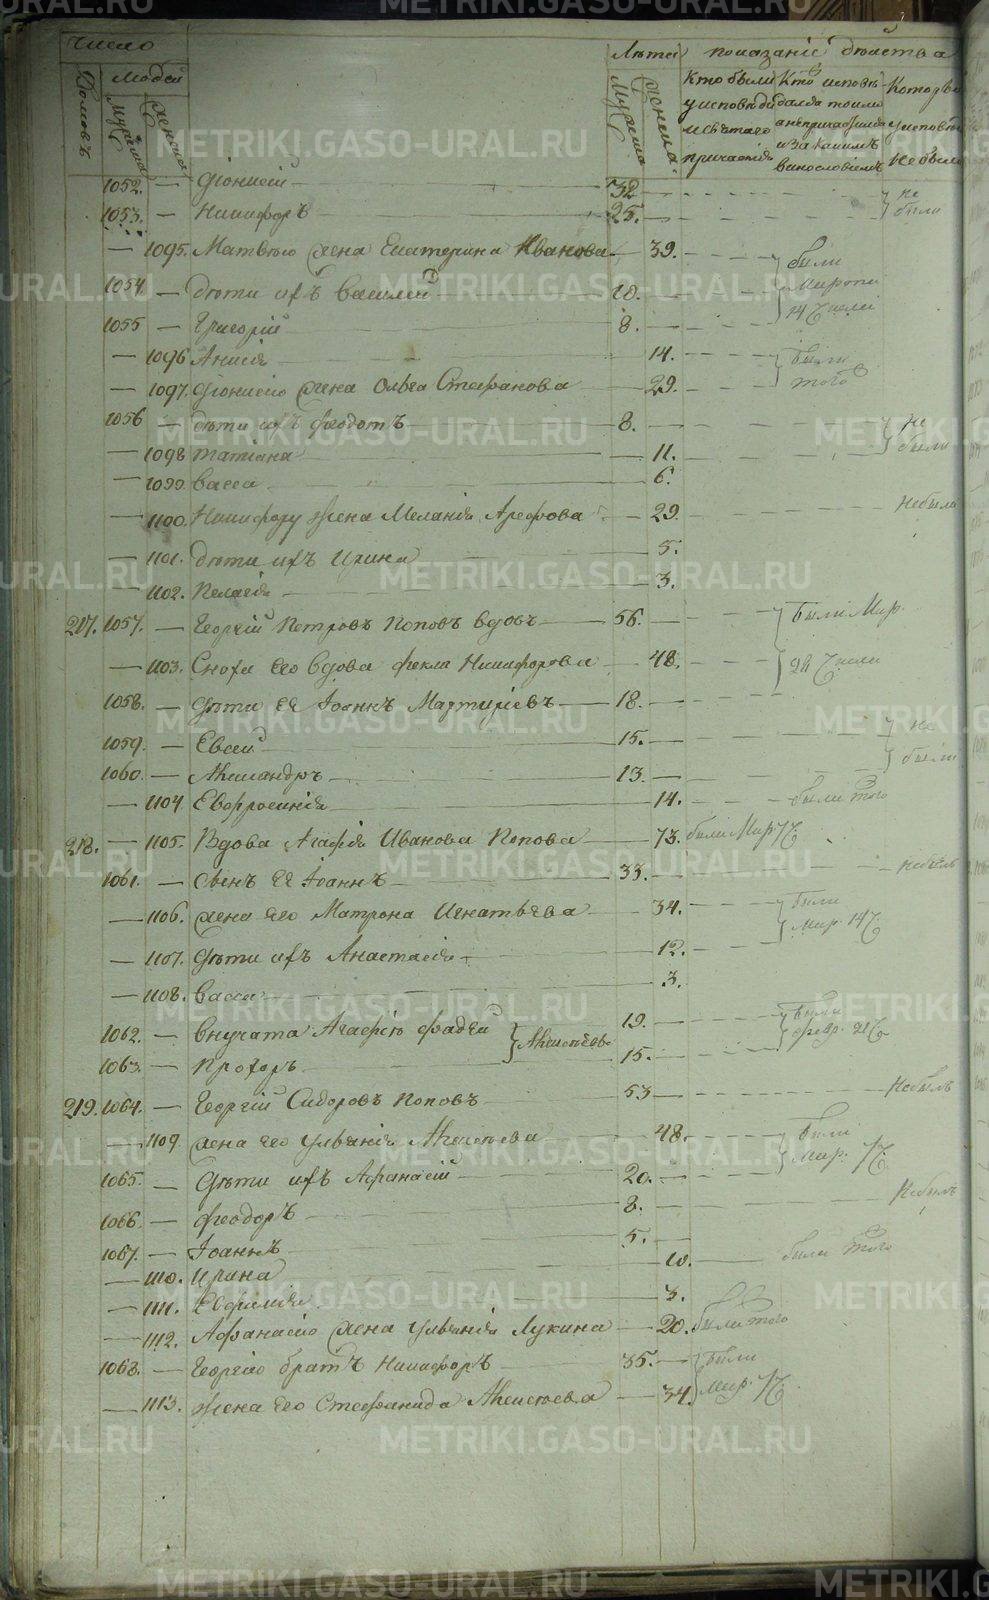 число
Лѣта показанїе дѣйства
Домовъ людей Мужеска женска
Мужеска женска
кто были у исповѣди и святаго причастїя
Кто исповѣдался токмо а не причастился и за какимъ винословіемъ
Которые у исповѣди не были
1052. — Діонисій — 32 не
1053. — Никифоръ — 25. были
— 1095. Матвѣю жена Екатерина Иванова — 39. были
1054 — дѣти ихъ василий — 10. Миропи
1055 — Григорїй — 8. 14 Числ
— 1096 Анисїя — 14. были
— 1097. Діонисїю жена Ольга Стефанова — 29. того
1056 — дѣти ихъ феодотъ — 8. не
— 1098 татїана — 11. были
— 1099 васса — 6.
— 1100. Никифору жена Меланїя Арефова — 29 небыла
— 1101. дѣти ихъ Ирина — 5.
— 1102. Пелагїя — 3.
217. 1057. — Георгїй Петровъ Поповъ вдовъ — 56. — были Мар.
— 1103. Сноха его вдова фекла Никифорова — 48.
1058. — дѣти ея Іоаннъ Мартирїевъ — 18. —
1059. — Евсей — 15. — не
1060. — Александръ — 13. — были
— 1104 Евфросинїя — 14. были того
218. — 1105. Вдова Агафїя Иванова Попова — 73. были Мар 7 Ч
1061. — сынъ ея Іоаннъ — 33. — небылъ
— 1106. жена его Матрона Игнатьева — 34. были
Мар. 14 Ч.
— 1107. дѣти ихъ Анастасїя — 12.
— 1108. Васса — 3.
1062. — внучата Агафїю фадей — 19. — были
Алексѣевы февр. 21 Ч
1063. — Прохоръ — 15. —
219. 1064. — Георгїй Сидоровъ Поповъ — 53 — небылъ
— 1109 жена его Ульянїя Алексѣева — 48. были
Мар. 7 Ч.
1065. — дѣти ихъ Афанасїй — 20. —
1066. — феодоръ — 8. — Небылъ
1067. — Іоаннъ — 5. —
— 1110. Ирина — 10. — были того
— 1111. Евфимїя — 3.
— 1112. Афанасїю жена Ульянїя Лукина — 20. были того
1068. — Георгїю братъ Никифоръ — 35. — были
— 1113. жена его Стефанида Алексѣева — 34. Мар. 7 Ч
METRIKI.GASO-URAL.RU